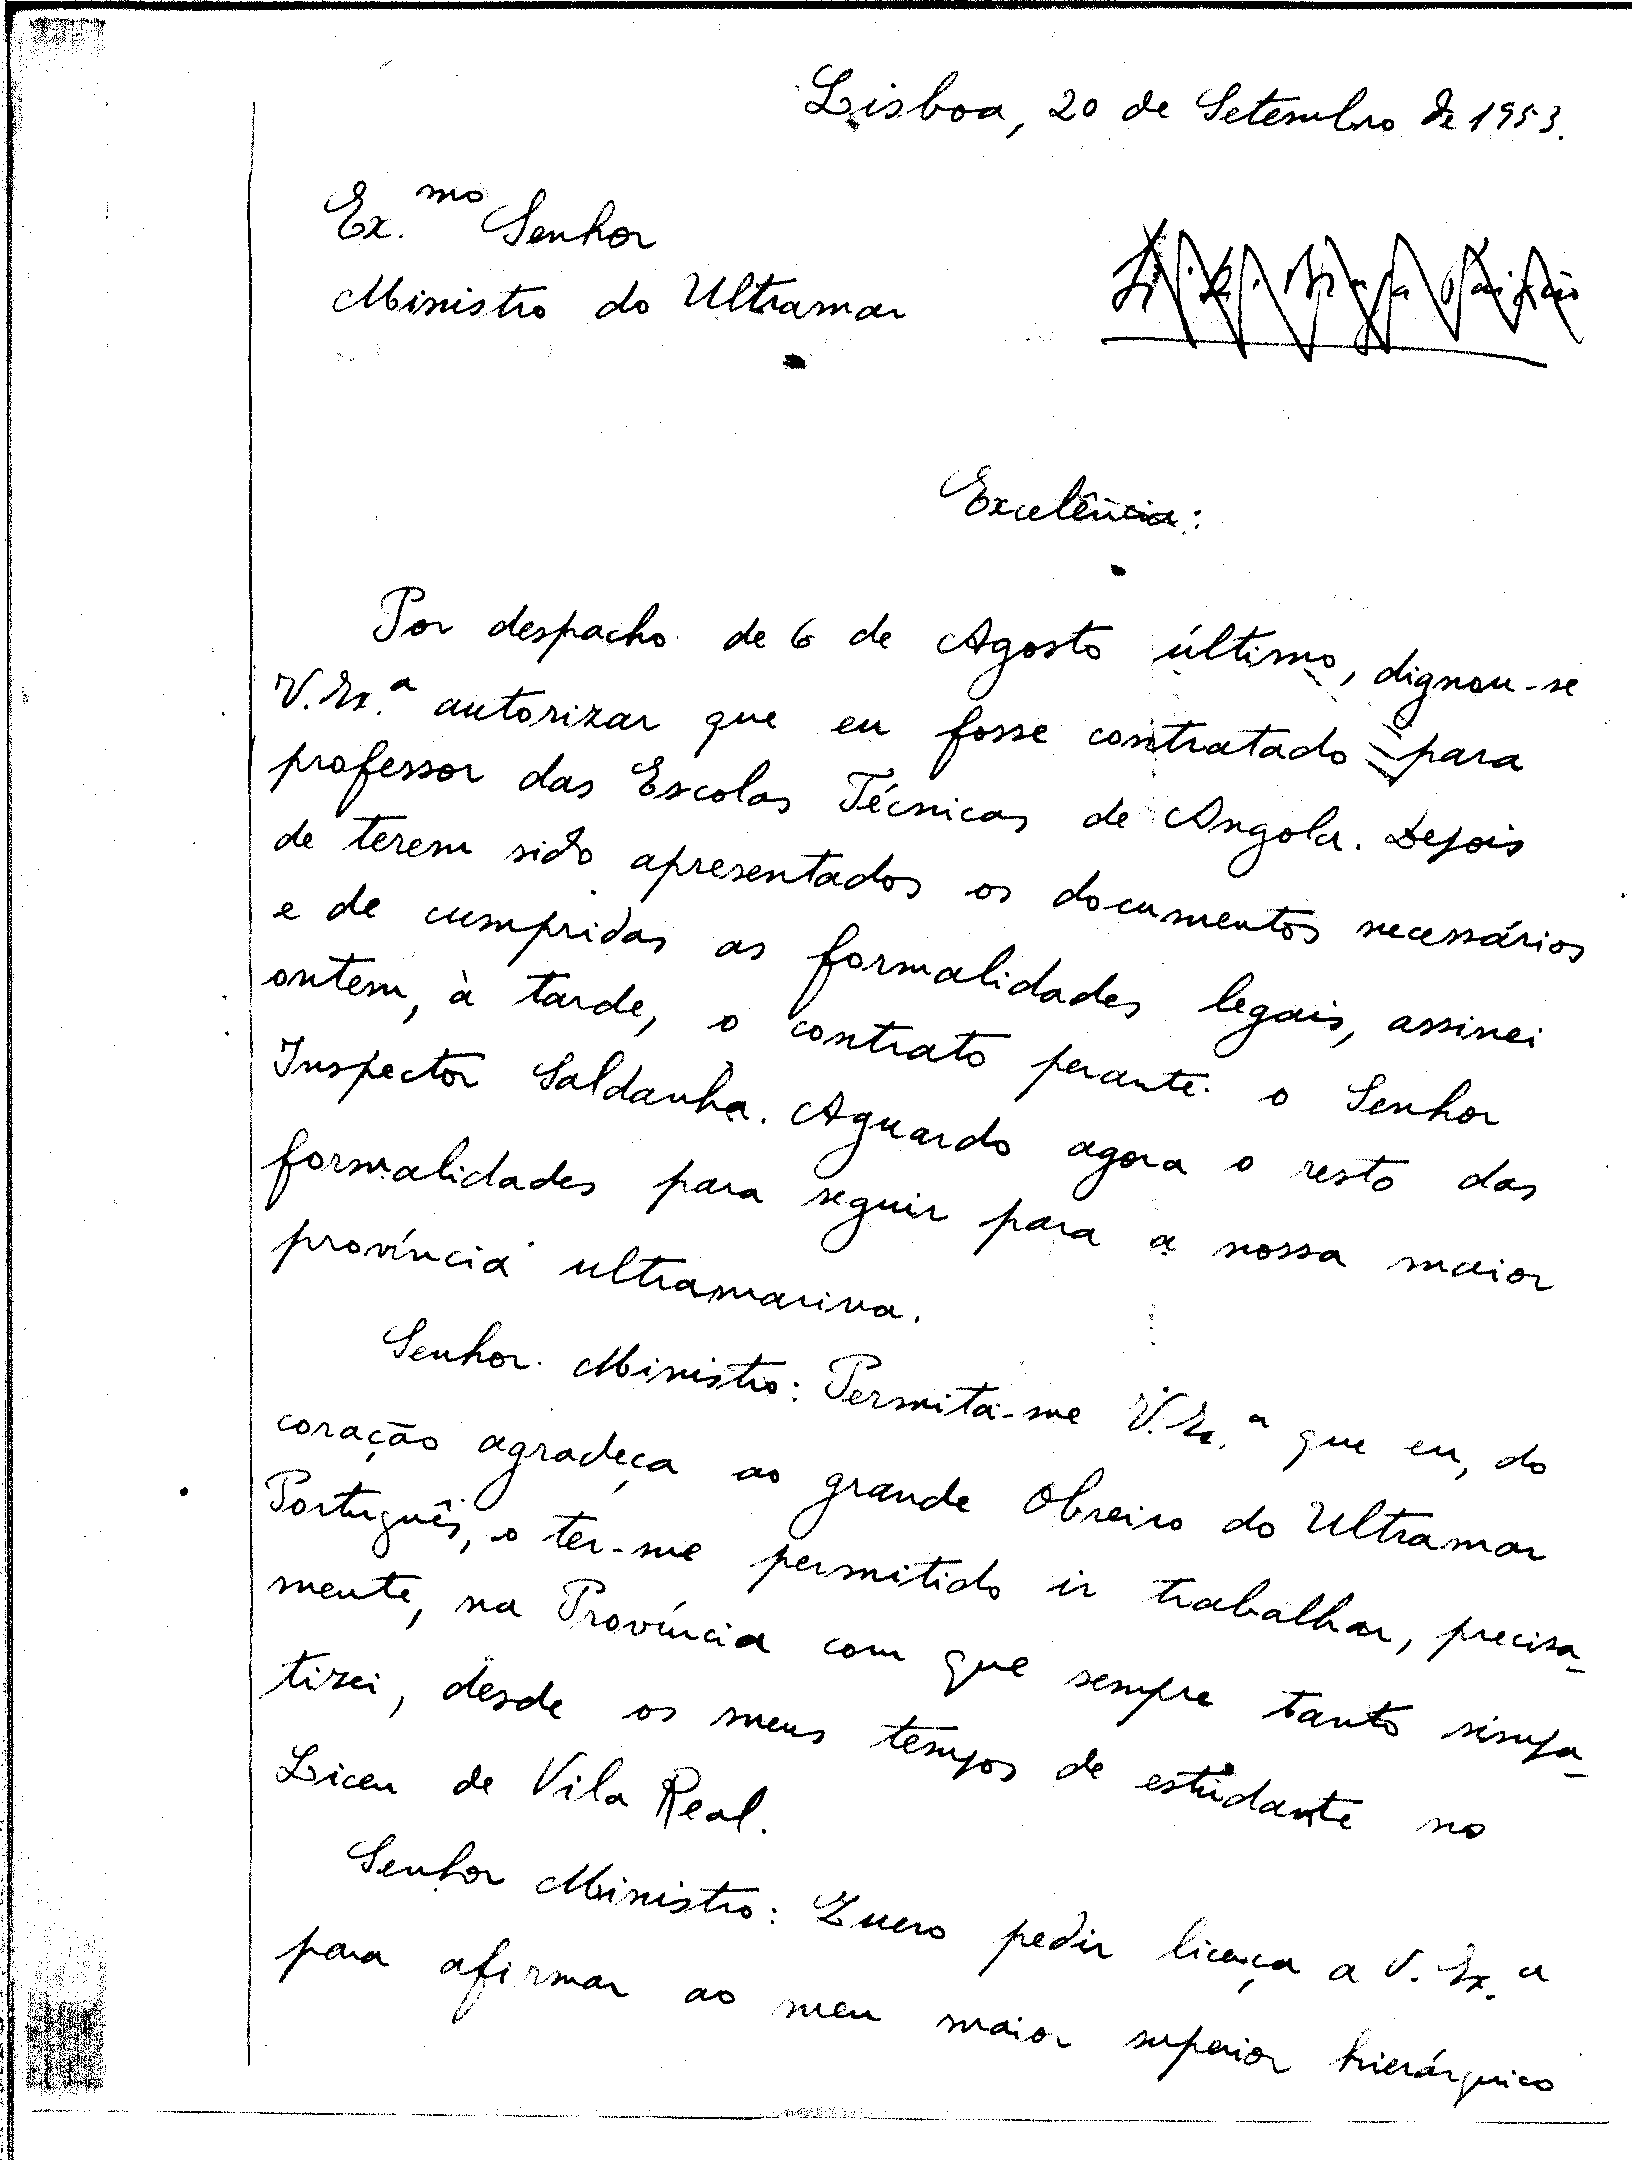 Lisboa, 20 de Setembro de 1953.
Ex.mo Senhor
Ministro do Ultramar
Excelência:
Por despacho de 6 de Agosto último, dignou-se
V. Ex.a autorizar que eu fosse contratado para
professor das Escolas Técnicas de Angola. Depois
de terem sido apresentados os documentos necessários
e de cumpridas as formalidades legais, assinei
ontem, à tarde, o contrato perante o Senhor
Inspector Saldanha. Aguardo agora o resto das
formalidades para seguir para a nossa maior
província ultramarina.
Senhor Ministro: Permita-me V. Ex.a que eu, do
coração agradeça ao grande Obreiro do Ultramar
Português, o ter-me permitido ir trabalhar, precisa-
mente, na Província com que sempre tanto simpa-
tizei, desde os meus tempos de estudante no
Liceu de Vila Real.
Senhor Ministro: Quero pedir licença a V. Ex.a
para afirmar ao meu maior superior hierárquico